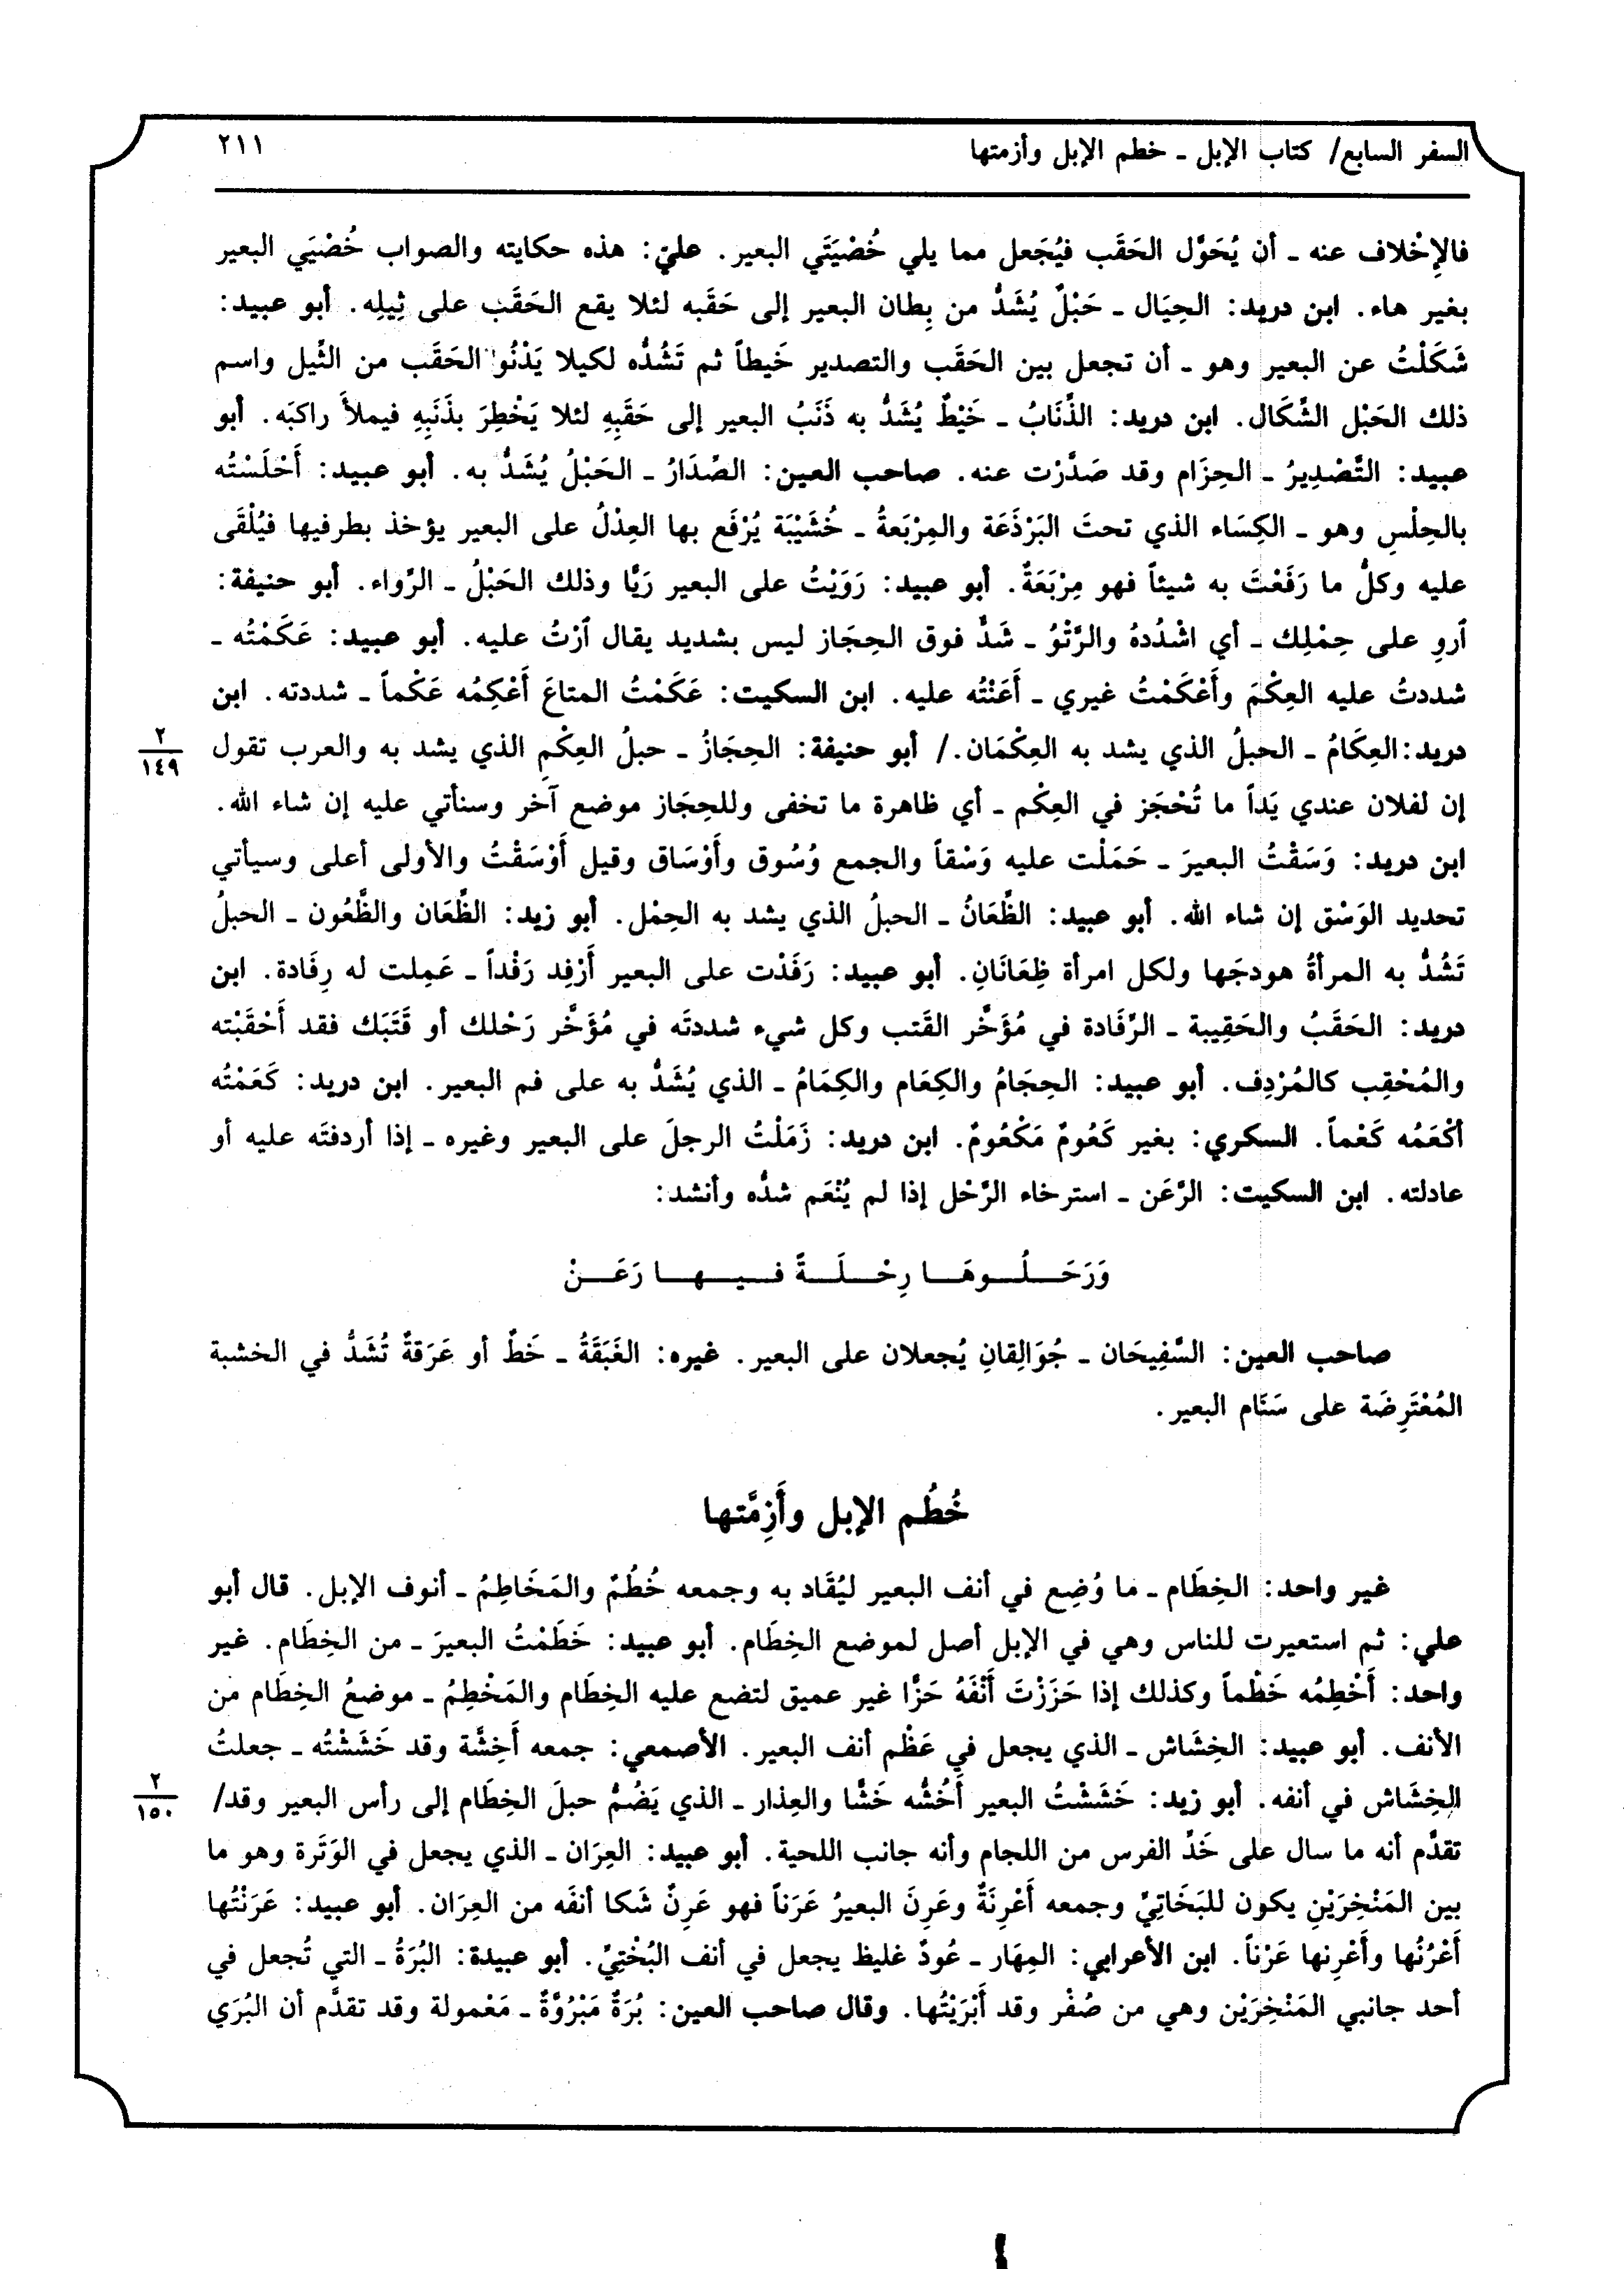 السفر السابع/ كتاب الإبل ـ خطم الإبل وأزمتها
٢١١
فالإِخْلاف عنه ـ أن يُحَوَّل الحَقَب فيُجَعل مما يلي خُصْيَتَي البعير. عليّ: هذه حكايته والصواب خُصْيَي البعير
بغير هاء. ابن دريد: الحِيَال ـ حَبْلٌ يُشَدُّ من بِطان البعير إلى حَقَبه لئلا يقع الحَقَب على ثِيلِه. أبو عبيد:
شَكَلْتُ عن البعير وهو ـ أن تجعل بين الحَقَب والتصدير خَيطاً ثم تَشُدُّه لكيلا يَدْنُوا الحَقَب من الثِّيل واسم
ذلك الحَبْل الشِّكَال. ابن دريد: الذِّنَابُ ـ خَيْطٌ يُشَدُّ به ذَنَبُ البعير إلى حَقَبِهِ لئلا يَخْطِرَ بذَنَبِهِ فيملأَ راكبَه. أبو
عبيد: التَّصْدِيرُ ـ الحِزَام وقد صَدَّرْت عنه. صاحب العين: الصِّدَارُ ـ الحَبْلُ يُشَدُّ به. أبو عبيد: أَحْلَسْتُه
بالحِلْسِ وهو ـ الكِسَاء الذي تحتَ البَرْذَعَة والمِرْبَعةُ ـ خُشَيْبَة يُرْفَع بها العِدْلُ على البعير يؤخذ بطرفيها فيُلْقَى
عليه وكلُّ ما رَفَعْتَ به شيئاً فهو مِرْبَعَةٌ. أبو عبيد: رَوَيْتُ على البعير رَيًّا وذلك الحَبْلُ ـ الرِّواء. أبو حنيفة:
آروِ على حِمْلِك ـ أي اشْدُدهُ والرَّتْوُ ـ شَدٌّ فوق الحِجَاز ليس بشديد يقال آرْتُ عليه. أبو عبيد: عَكَمْتُه ـ
شددتُ عليه العِكْمَ وأَعْكَمْتُ غيري ـ أَعَنْتُه عليه. ابن السكيت: عَكَمْتُ المتاعَ أَعْكِمُه عَكْماً ـ شددته. ابن
دريد:العِكَامُ ـ الحبلُ الذي يشد به العِكْمَان./ أبو حنيفة: الحِجَازُ ـ حبلُ العِكْمِ الذي يشد به والعرب تقول
٢
١٤٩
إن لفلان عندي يَداً ما تُحْجَز في العِكْم ـ أي ظاهرة ما تخفى وللحِجَاز موضع آخر وسنأتي عليه إن شاء الله.
ابن دريد: وَسَقْتُ البعيرَ ـ حَمَلْت عليه وَسْقاً والجمع وُسُوق وأَوْسَاق وقيل أَوْسَقْتُ والأولى أعلى وسيأتي
تحديد الوَسْق إن شاء الله. أبو عبيد: الظِّعَانُ ـ الحبلُ الذي يشد به الحِمْل. أبو زيد: الظِّعَان والظَّعُون ـ الحبلُ
تَشُدُّ به المرأةُ هودجَها ولكل امرأة ظِعَانَانِ. أبو عبيد: رَفَدْت على البعير أَرْفِد رَفْداً ـ عَمِلت له رِفَادة. ابن
دريد: الحَقَبُ والحَقِيبة ـ الرِّفَادة في مُؤَخَّر القَتب وكل شيء شددتَه في مُؤَخَّر رَحْلك أو قَتَبَك فقد أَحْقَبْته
والمُحْقِب كالمُرْدِف. أبو عبيد: الحِجَامُ والكِعَام والكِمَامُ ـ الذي يُشَدُّ به على فم البعير. ابن دريد: كَعَمْتُه
أكْعَمُه كَعْماً. السكري: بغير كَعُومٌ مَكْعُومٌ. ابن دريد: زَمَلْتُ الرجلَ على البعير وغيره ـ إذا أردفتَه عليه أو
عادلته. ابن السكيت: الرَّعَن ـ استرخاء الرَّحْل إذا لم يُنْعَم شدُّه وأنشد:
وَرَحَلُوهَا رِحْلَةً فيها رَعَنْ
صاحب العين: السَّفِيحَان ـ جُوَالِقانِ يُجعلان على البعير. غيره: الغَبَقَةُ ـ خَطٌ أو عَرَقةٌ تُشَدُّ في الخشبة
المُعْتَرِضَة على سَنَام البعير.
خُطُم الإبل وأَزِمَّتها
غير واحد: الخِطَام ـ ما وُضِع في أنف البعير ليُقَاد به وجمعه خُطُمٌ والمَخَاطِمُ ـ أنوف الإبل. قال أبو
علي: ثم استعيرت للناس وهي في الإبل أصل لموضع الخِطَام. أبو عبيد: خَطَمْتُ البعيرَ ـ من الخِطَام. غير
واحد: أَخْطِمُه خَطْماً وكذلك إذا حَزَزْتَ أَنْفَهُ حَزًّا غير عميق لتضع عليه الخِطَام والمَخْطِمُ ـ موضعُ الخِطَام من
الأنف. أبو عبيد: الخِشَاش ـ الذي يجعل في عَظْم أنف البعير. الأصمعي: جمعه أَخِشَّة وقد خَشَشْتُه ـ جعلتُ
الخِشَاش في أنفه. أبو زيد: خَشَشْتُ البعير أَخُشُّه خَشًّا والعِذار ـ الذي يَضُمُّ حبلَ الخِطَام إلى رأس البعير وقد/
٢
١٥٠
تقدَّم أنه ما سال على خَدِّ الفرس من اللجام وأنه جانب اللحية. أبو عبيد: العِرَان ـ الذي يجعل في الوَتَرة وهو ما
بين المَنْخِرَيْنِ يكون للبَخَاتِيِّ وجمعه أَعْرِنَةٌ وعَرِنَ البعيرُ عَرَناً فهو عَرِنٌ شَكا أنفَه من العِرَان. أبو عبيد: عَرَنْتُها
أَعْرُنُها وأَعْرِنها عَرْناً. ابن الأعرابي: المِهَار ـ عُودٌ غليظ يجعل في أنف البُخْتِيِّ. أبو عبيدة: البُرَةُ ـ التي تُجعل في
أحد جانبي المَنْخِرَيْن وهي من صُفْر وقد أَبْرَيْتُها. وقال صاحب العين: بُرَةٌ مَبْرُوَّةٌ ـ مَعْمولة وقد تقدَّم أن البُرَي